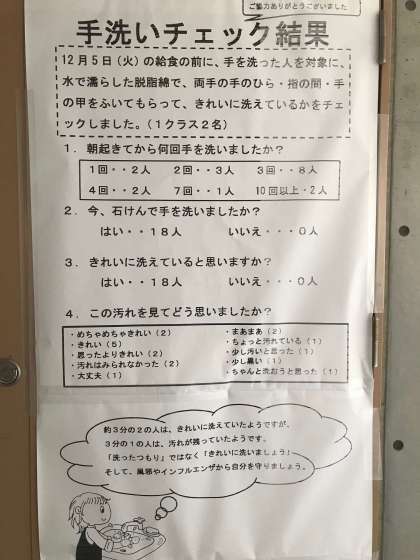 ご協力ありがとうございました
手洗いチェック結果
12月5日（火）の給食の前に、手を洗った人を対象に、
水で濡らした脱脂綿で、両手の手のひら・指の間・手
の甲をふいてもらって、きれいに洗えているかをチェ
ックしました。（1クラス2名）
1．朝起きてから何回手を洗いましたか？
1回・・2人　2回・・3人　3回・・8人
4回・・2人　7回・・1人　10回以上・2人
2．今、石けんで手を洗いましたか？
はい・・18人　いいえ・・・0人
3．きれいに洗えていると思いますか？
はい・・18人　いいえ・・・0人
4．この汚れを見てどう思いましたか？
・めちゃめちゃきれい（2）
・きれい（5）
・思ったよりきれい（2）
・汚れはみられなかった（2）
・大丈夫（1）
・まあまあ（2）
・ちょっと汚れている（1）
・少し汚いと思った（1）
・少し黒い（1）
・ちゃんと洗おうと思った（1）
約3分の2の人は、きれいに洗えていたようですが、
3分の1の人は、汚れが残っていたようです。
「洗ったつもり」ではなく「きれいに洗いましょう」
そして、風邪やインフルエンザから自分を守りましょう。